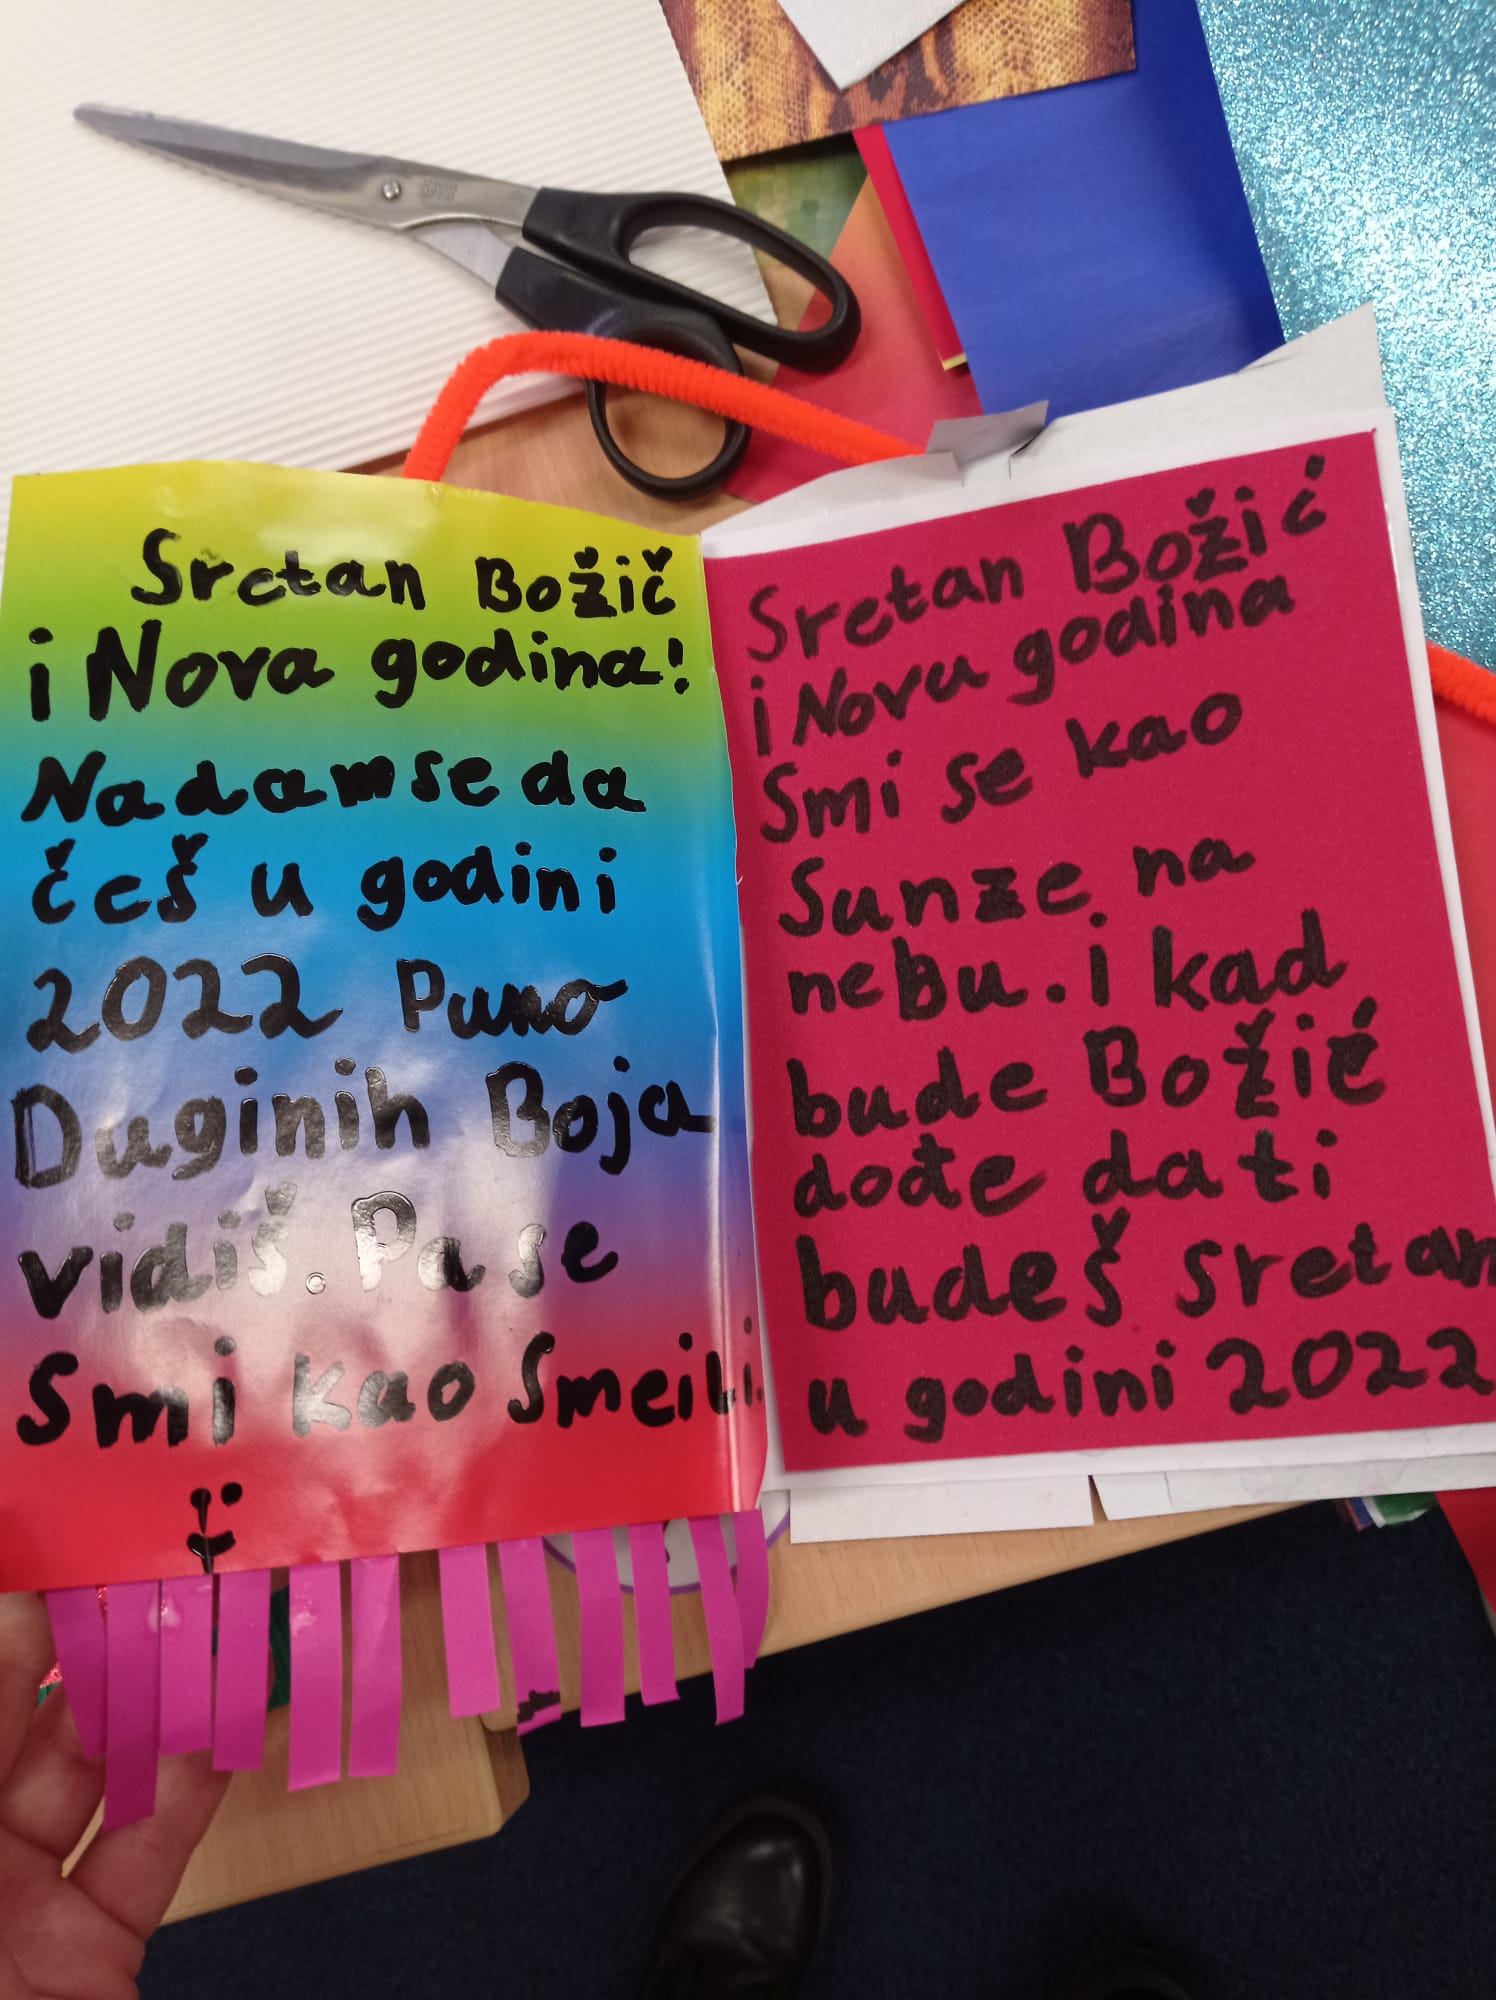 Sretan Božič
i Nova godina!
Nadam se da
češ u godini
2022 Puno
Duginih Boja
vidiš. Pa se
Smi kao Smeili.
Sretan Božić
i Novu godina
Smi se kao
Sunze na
nebu. i kad
bude Božić
dođe da ti
budeš sretan
u godini 2022